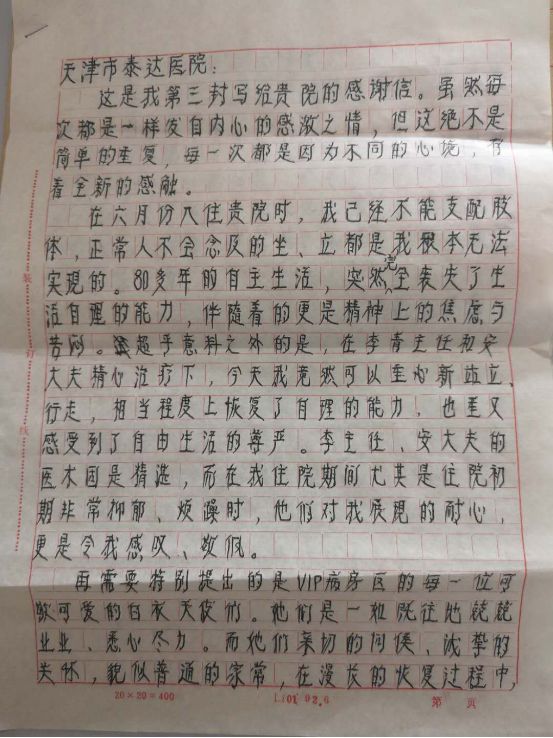 天津市泰达医院：
这是我第三封写给贵院的感谢信。虽然每
次都是一样发自内心的感激之情，但这绝不是
简单的重复，每一次都是因为不同的心境，存
着全新的感触。
在六月份入住贵院时，我已经不能支配肢
体，正常人不会念及的坐、立都是我根本无法
实现的。80多年的自主生活，突然完全丧失了生
活自理的能力，伴随着的更是精神上的焦虑与
苦闷。超乎意料之外的是，在李青主任和安
大夫精心治疗下，今天我竟然可以重新站立、
行走，相当程度上恢复了自理的能力，也重又
感受到了自由生活的尊严。李主任、安大夫的
医术固是精选，而在我住院期间尤其是住院初
期非常抑郁、烦躁时，他们对我展现的耐心，
更是令我感叹、敬佩。
再需要特别提出的是VIP病房区的每一位可
敬可爱的白衣天使们。他们是一如既往地兢兢
业业、悉心尽力。而他们亲切的问候、诚挚的
关怀，貌似普通的家常，在漫长的恢复过程中，
装
订
线
20×20=400
第 页